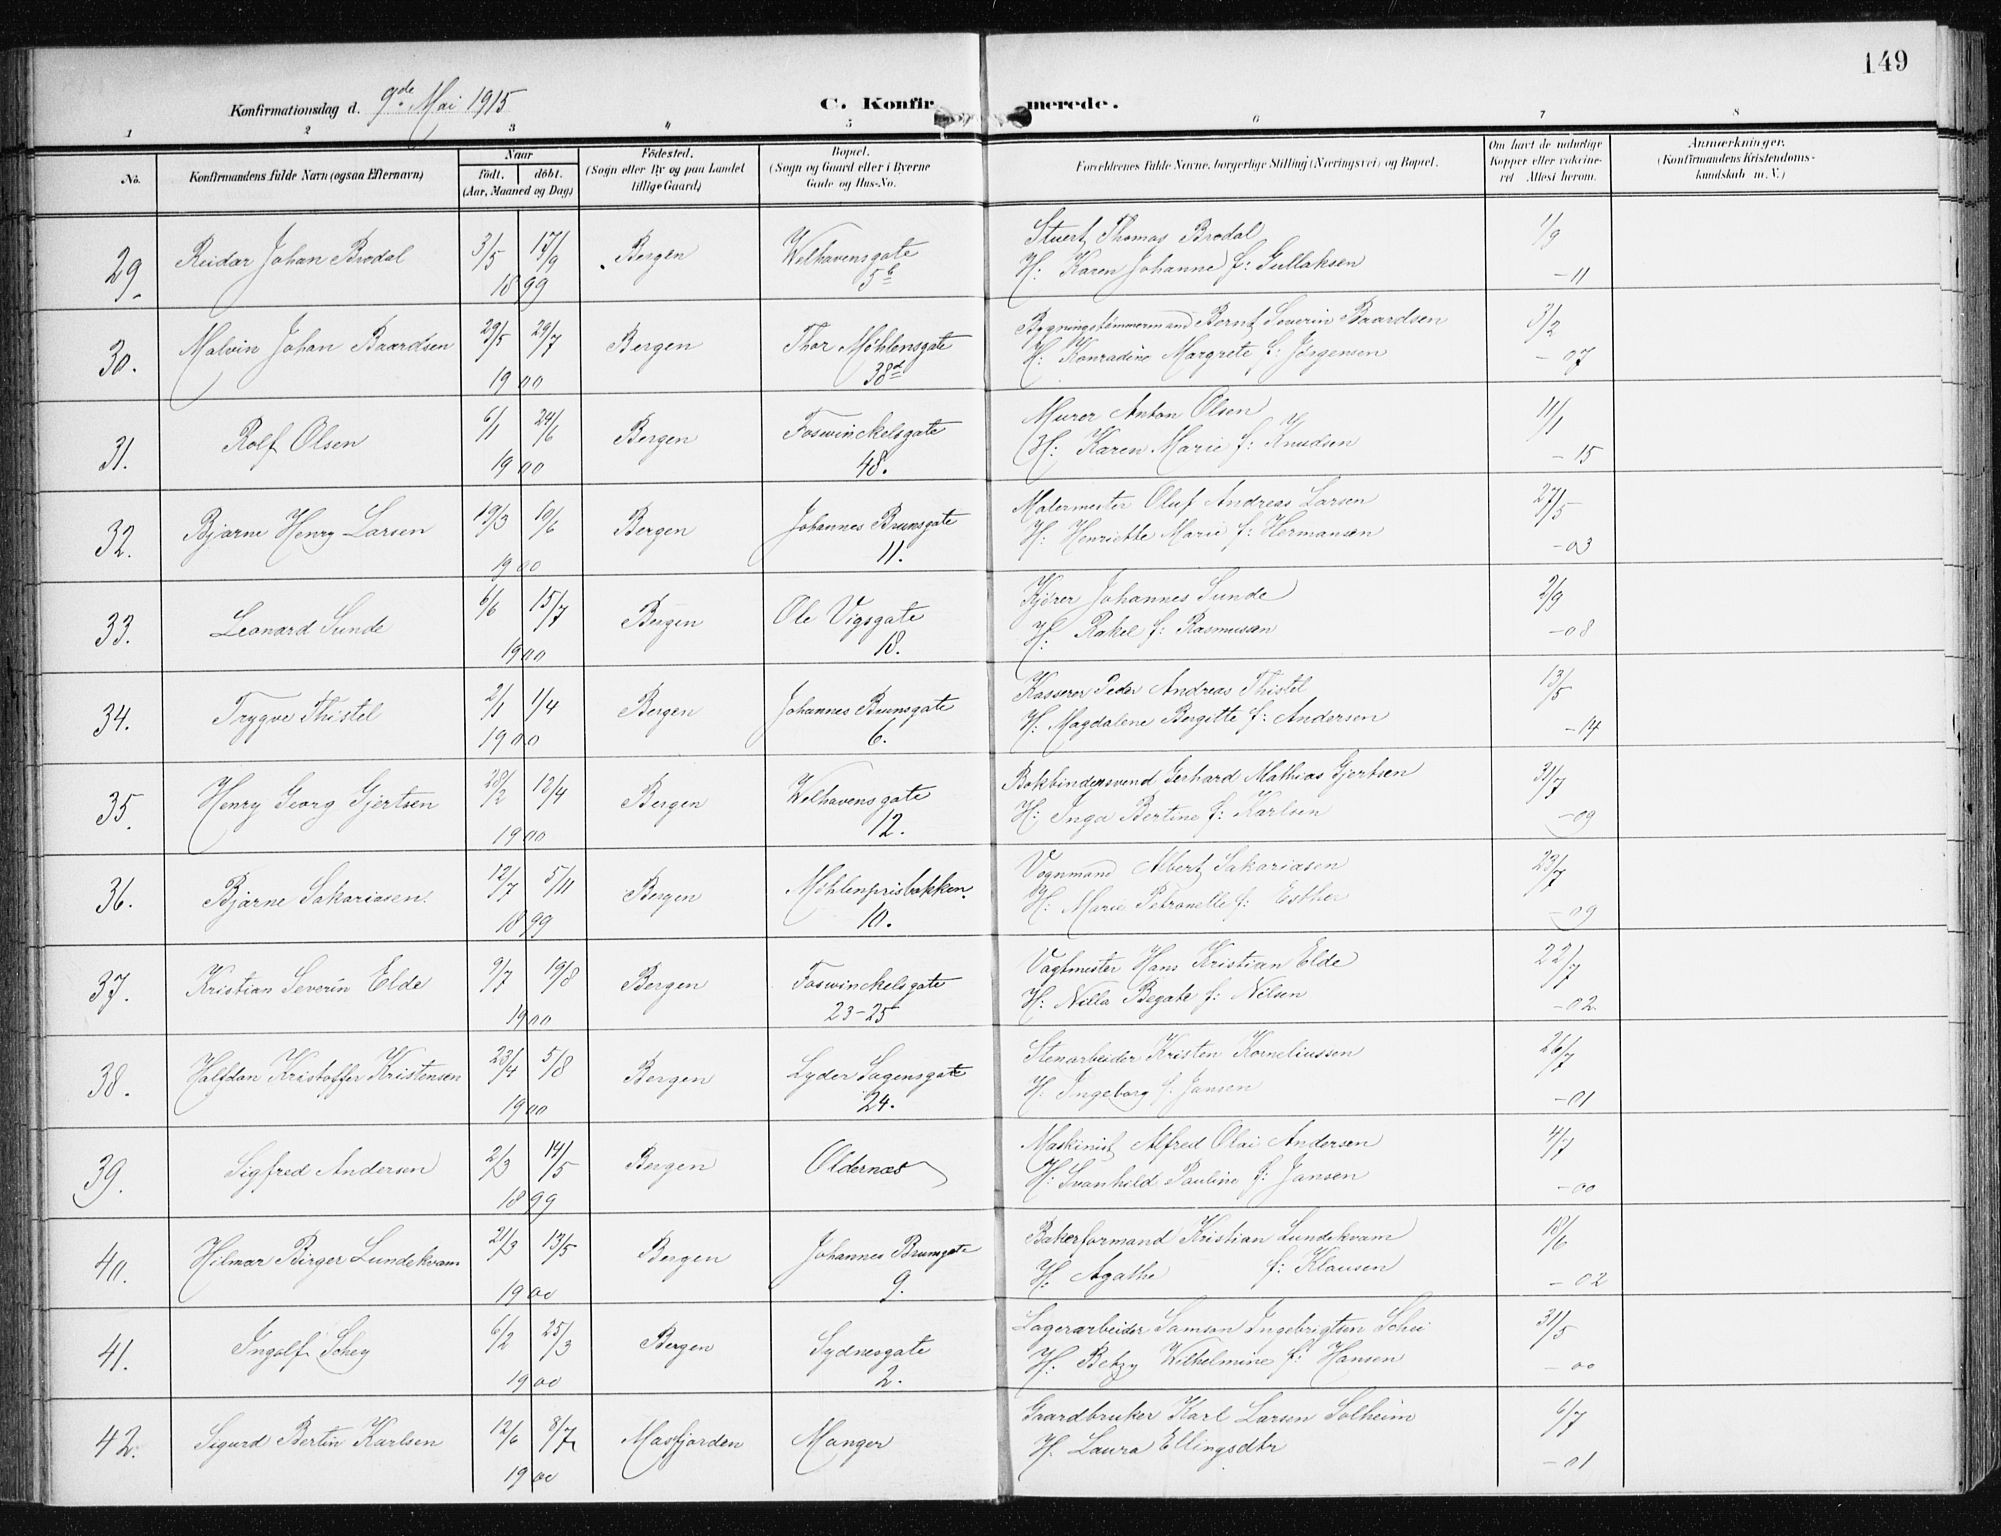 149
Konfirmationsdag d. 9de Mai 1915
C. Konfirmerede.
1 2 3 " 5 6 7 8
No.
Konfirmandens fulde Navn (ogsaa Efternavn)
Naar
født. døbt.
(Aar, Maaned og Dag)
Fødested.
(Sogn eller By og paa Landet
tillige Gaard)
Bopæl.
(Sogn og Gaard eller i Byerne
Gade og Hus-No.
Forældrenes fulde Navne, borgerlige Stilling (Næringsvei) og Bopæl.
Om havt de naturlige
Kopper eller vakcine-
ret Attest herom.
Anmærkninger.
(Konfirmandens Kristendoms-
kundskab m. V.)
29. Reidar Johan Brodal 3/5 17/9 1899 Bergen Welhavensgate 5b
Stuert Thomas Brodal 1/9
H: Karen Johanne f: Gullaksen -11
30. Malvin Johan Baardsen 29/5 29/7 1900 Bergen Thor Møhlensgate 38d
Bygningstømmermand Bernt Severin Baardsen 3/2
H: Konradine Margrete f: Jørgensen -07
31. Rolf Olsen 6/1 24/6 1900 Bergen Foswinckelsgate 48.
Murer Anton Olsen 11/1
H: Karen Marie f: Knudsen -15
32. Bjarne Henry Larsen 19/3 10/6 1900 Bergen Johannes Brunsgate 11.
Malermester Oluf Andreas Larsen 27/5
H: Henriette Marie f: Hermansen -03
33. Leonard Sunde 6/6 15/7 1900 Bergen Ole Vigsgate 18.
Kjører Johannes Sunde 2/9
H: Rakel f: Rasmussen -08
34. Trygve Thistel 2/1 1/4 1900 Bergen Johannes Brunsgate 6.
Kasserer Peder Andreas Thistel 13/5
H: Magdalene Bergitte f: Andersen -14
35. Henry Georg Gjertsen 28/2 12/4 1900 Bergen Welhavensgate 12.
Bokbindersvend Gerhard Mathias Gjertsen 31/7
H: Inga Bertine f: Karlsen -09
36. Bjarne Sakariasen. 12/7 5/11 1899 Bergen Møhlenprisbakken. 10.
Vognmand Albert Sakariasen 23/7
H: Marie Petronelle f: Esther -09
37. Kristian Severin Elde 9/7 19/8 1900 Bergen Foswinckelsgate 23-25
Vagtmester Hans Kristian Elde 22/7
H: Nilla Begate f: Nilsen -02
38. Halfdan Kristoffer Kristensen 23/4 5/8 1900 Bergen Lyder Sagensgate 24.
Stenarbeider Kristen Korneliussen 26/7
H: Ingeborg f. Jansen -01
39. Sigfred Andersen 2/3 14/5 1899 Bergen Oldernæs
Maskinist Alfred Olai Andersen 4/7
H: Svanhild Pauline f: Jansen -00
40. Hilmar Birger Lundekvam 21/3 13/5 1900 Bergen Johannes Brunsgate 9.
Bakerformand Kristian Lundekvam 18/6
H: Agathe f: Klausen -02
41. Ingolf Schey 6/2 25/3 1900 Bergen Sydnesgate 2.
Lagerarbeider Samson Ingebrigtsen Schei 31/5
H: Betzy Wilhelmine f: Hansen -00
42. Sigurd Bertin Karlsen 12/6 8/7 1900 Masfjorden Manger
Gaardbruker Karl Larsen Solheim 6/7
H. Laura Ellingsdtr -01